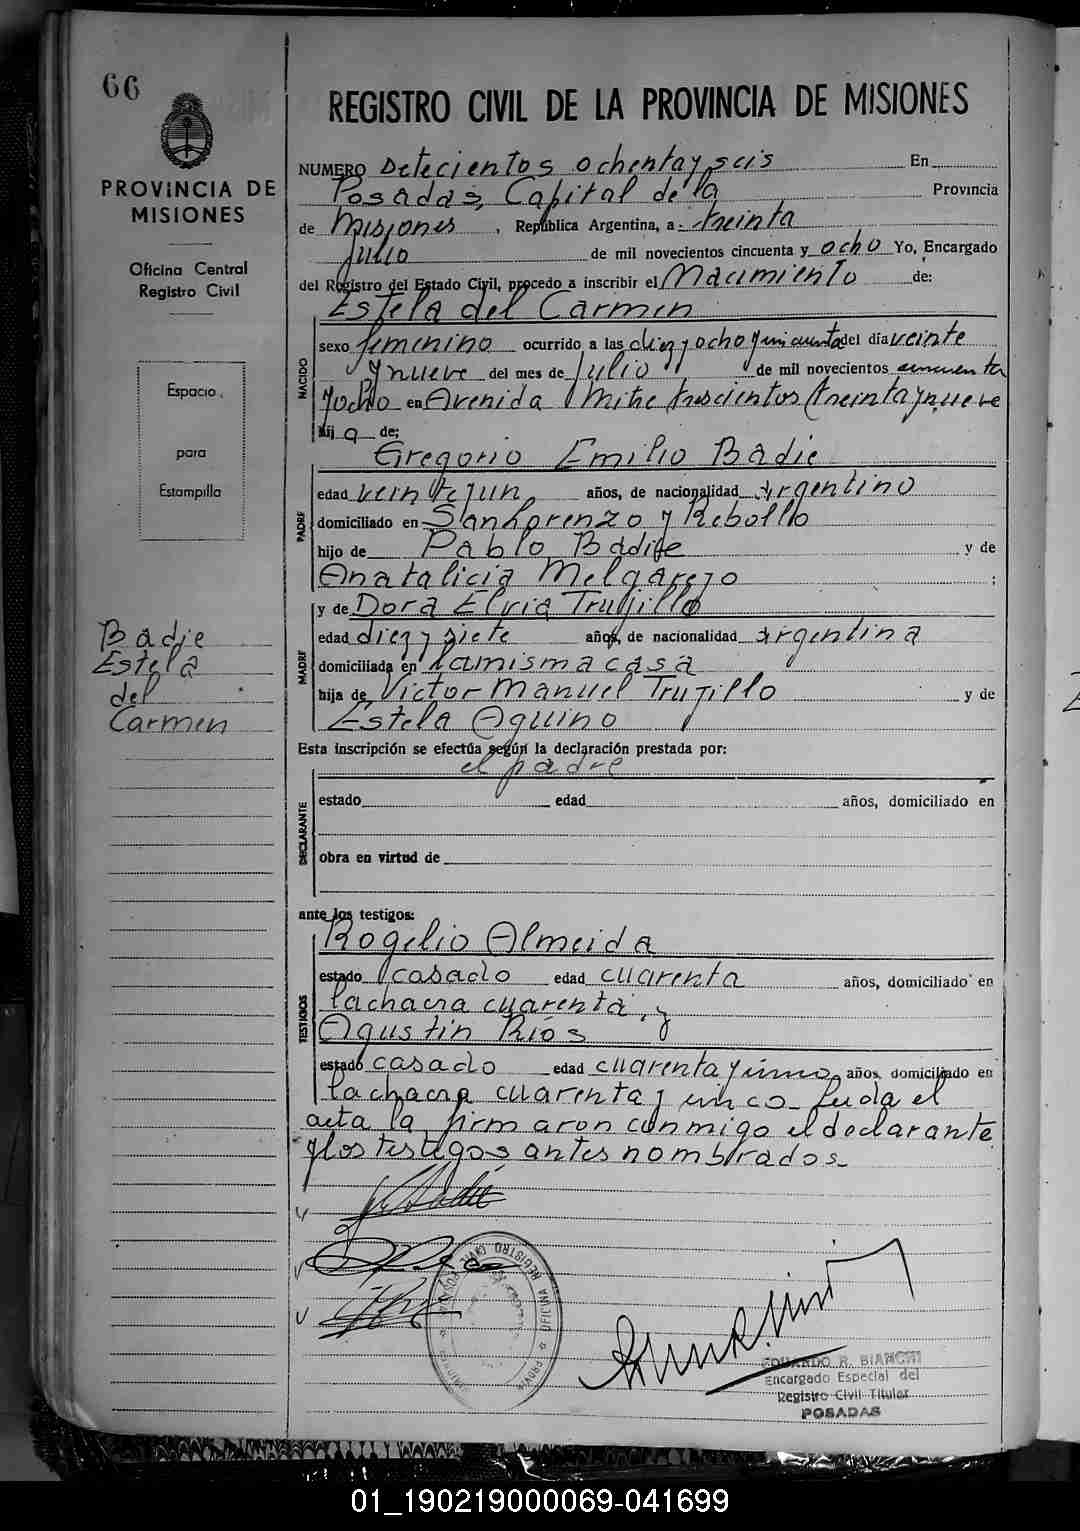 66
PROVINCIA DE
MISIONES
Oficina Central
Registro Civil
Espacio
para
Estampilla
Badie
Estela
del
Carmen
REGISTRO CIVIL DE LA PROVINCIA DE MISIONES
NUMERO Setecientos ochenta y seis En
Posadas, Capital de la Provincia
de Misiones, República Argentina, a treinta
Julio de mil novecientos cincuenta y ocho Yo, Encargado
del Registro del Estado Civil, procedo a inscribir el Nacimiento de:
Estela del Carmen
NACIDO
sexo femenino ocurrido a las diez y ocho y cincuenta del día veinte
y nueve del mes de Julio de mil novecientos cincuenta
y ocho en Avenida Mitre trescientos treinta y nueve
hija de:
Gregorio Emilio Badie
PADRE
edad veinte y un años, de nacionalidad argentino
domiciliado en San Lorenzo y Rebollo
hijo de Pablo Badie y de
Anatalicia Melgarejo ;
y de Dora Elvia Trujillo
MADRE
edad diez y siete años, de nacionalidad argentina
domiciliada en la misma casa
hija de Victor Manuel Trujillo y de
Estela Aquino
Esta inscripción se efectúa según la declaración prestada por:
el padre
DECLARANTE
estado edad años, domiciliado en
obra en virtud de
ante los testigos:
Rogelio Almeida
TESTIGOS
estado casado edad cuarenta años, domiciliado en
la chacra cuarenta, y
Agustin Ríos
estado casado edad cuarenta y cinco años, domiciliado en
la chacra cuarenta y cinco Leida el
acta la firmaron conmigo el declarante
y los testigos antes nombrados
OFICINA REGISTRO CIVIL POSADAS
EDUARDO R. BIANCHI
Encargado Especial del
Registro Civil Titular
POSADAS
01_190219000069-041699